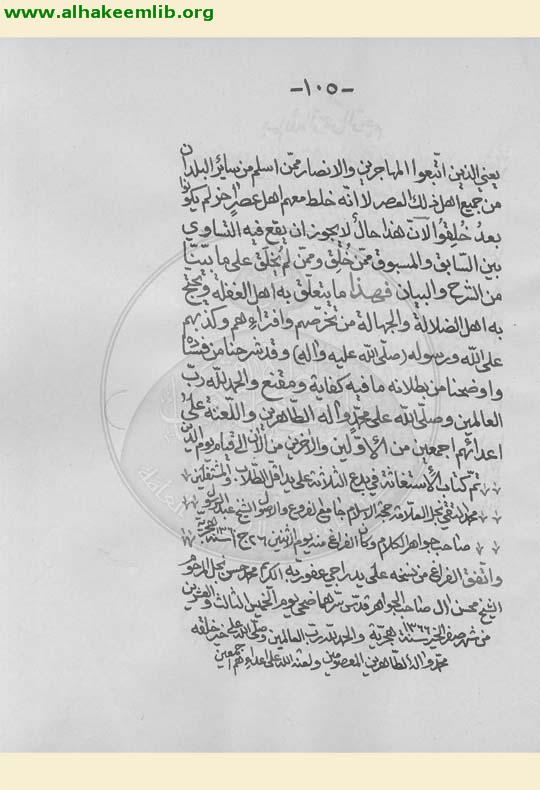 www.alhakeemlib.org
-١٠٥-
يعني الذين اتّبعوا المهاجرين والانصار ممّن اسلم من سائر البلدان
من جميع اهل ذلك العصر لا انّه خلط معهم اهل عصرٍ آخر لم يكونوا
بعدُ خُلِقوا لانّ هذا حالٌ لا يجوز ان يقع فيه التساوي
بين السّابق والمسبوق ممّن خُلِق وممّن لم يُخلَق على ما بيّنّا
من الشرح والبيان فهذا ما يتعلق به اهل الغفلة ويحتجّ
به اهل الضلالة والجهالة من تخرّصهم وافتراءهم وكذبهم
على الله ورسوله (صلّى الله عليه واله) وقد شرحنا من فساده
واوضحنا من بطلانه ما فيه كفاية ومقنع والحمد لله ربّ
العالمين وصلّى الله على محمّدٍ واله الطّاهرين واللّعنة على
اعدائهم اجمعين من الاوّلين والاخرين من الآن الى قيام يوم الدّين
تمّ كتاب الاستغاثة في بدع الثلاثة على يد اقلّ الطلّاب والمشتغلين
محمد تقي نجل العلّامة حجّة الاسلام جامع الفروع والاصول الشيخ عبد الرسول
صاحب جواهر الكلام وكان الفراغ منه يوم اثنين ٢٦ ج ١ سنة هجريّة
واتّفق الفراغ من نسخه على يد راجي عفو ربّه الكريم محمد حسن نجل المرحوم
الشيخ محسن ال صاحب الجواهر قدّس سرّهما ضحى يوم الخميس الثالث والعشرين
من شهر صفر الخير سنة ١٣٦٦ هجريّة والحمد لله ربّ العالمين وصلّى الله على خير خلقه
محمّد واله الطّاهرين المعصومين ولعنة الله على اعداءهم اجمعين